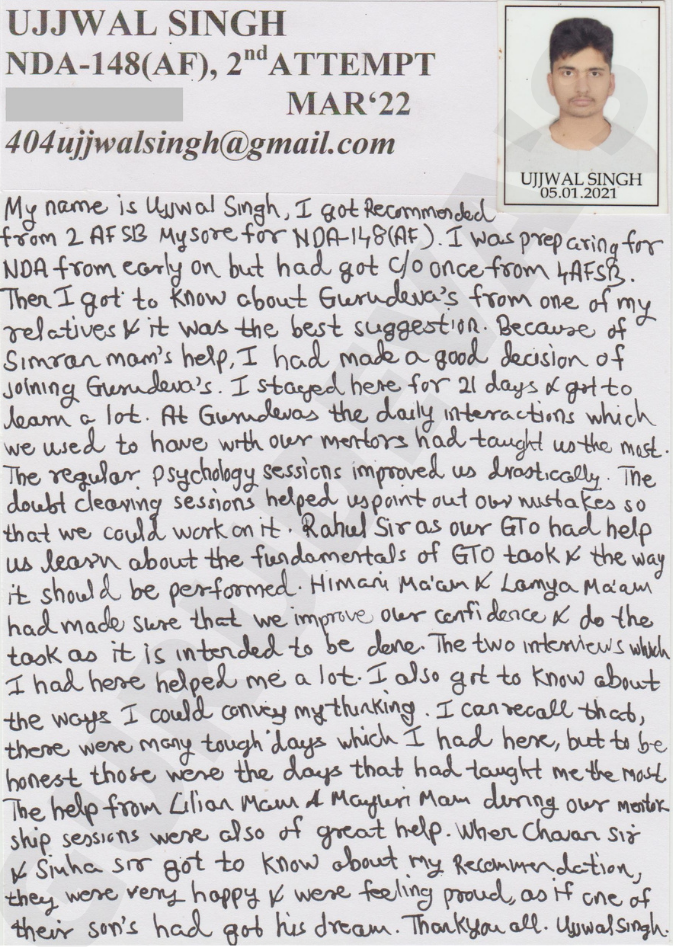 UJJWAL SINGH
NDA-148(AF), 2nd ATTEMPT
MAR‘22
404ujjwalsingh@gmail.com
UJJWAL SINGH
05.01.2021
My name is Ujjwal Singh, I got Recommended
from 2 AFSB Mysore for NDA-148(AF). I was preparing for
NDA from early on but had got C/O once from 4AFSB.
Then I got to know about Gurudeva's from one of my
relatives & it was the best suggestion. Because of
Simran mam's help, I had made a good decision of
joining Gurudeva's. I stayed here for 21 days & got to
learn a lot. At Gurudevas the daily interactions which
we used to have with our mentors had taught us the most.
The regular psychology sessions improved us drastically. The
doubt clearing sessions helped us point out our mistakes so
that we could work on it. Rahul Sir as our GTO had help
us learn about the fundamentals of GTO task & the way
it should be performed. Himani Ma'am & Lamya Ma'am
had made sure that we improve our confidence & do the
task as it is intended to be done. The two interviews which
I had here helped me a lot. I also got to know about
the ways I could convey my thinking. I can recall that,
there were many tough days which I had here, but to be
honest those were the days that had taught me the most
The help from Lilian Mam & Mayuri Mam during our mentor
ship sessions were also of great help. When Chavan Sir
& Sinha sir got to know about my Recommendation,
they were very happy & were feeling proud, as if one of
their son's had got his dream. Thankyou all. Ujjwal Singh.
GURUDEVA'S